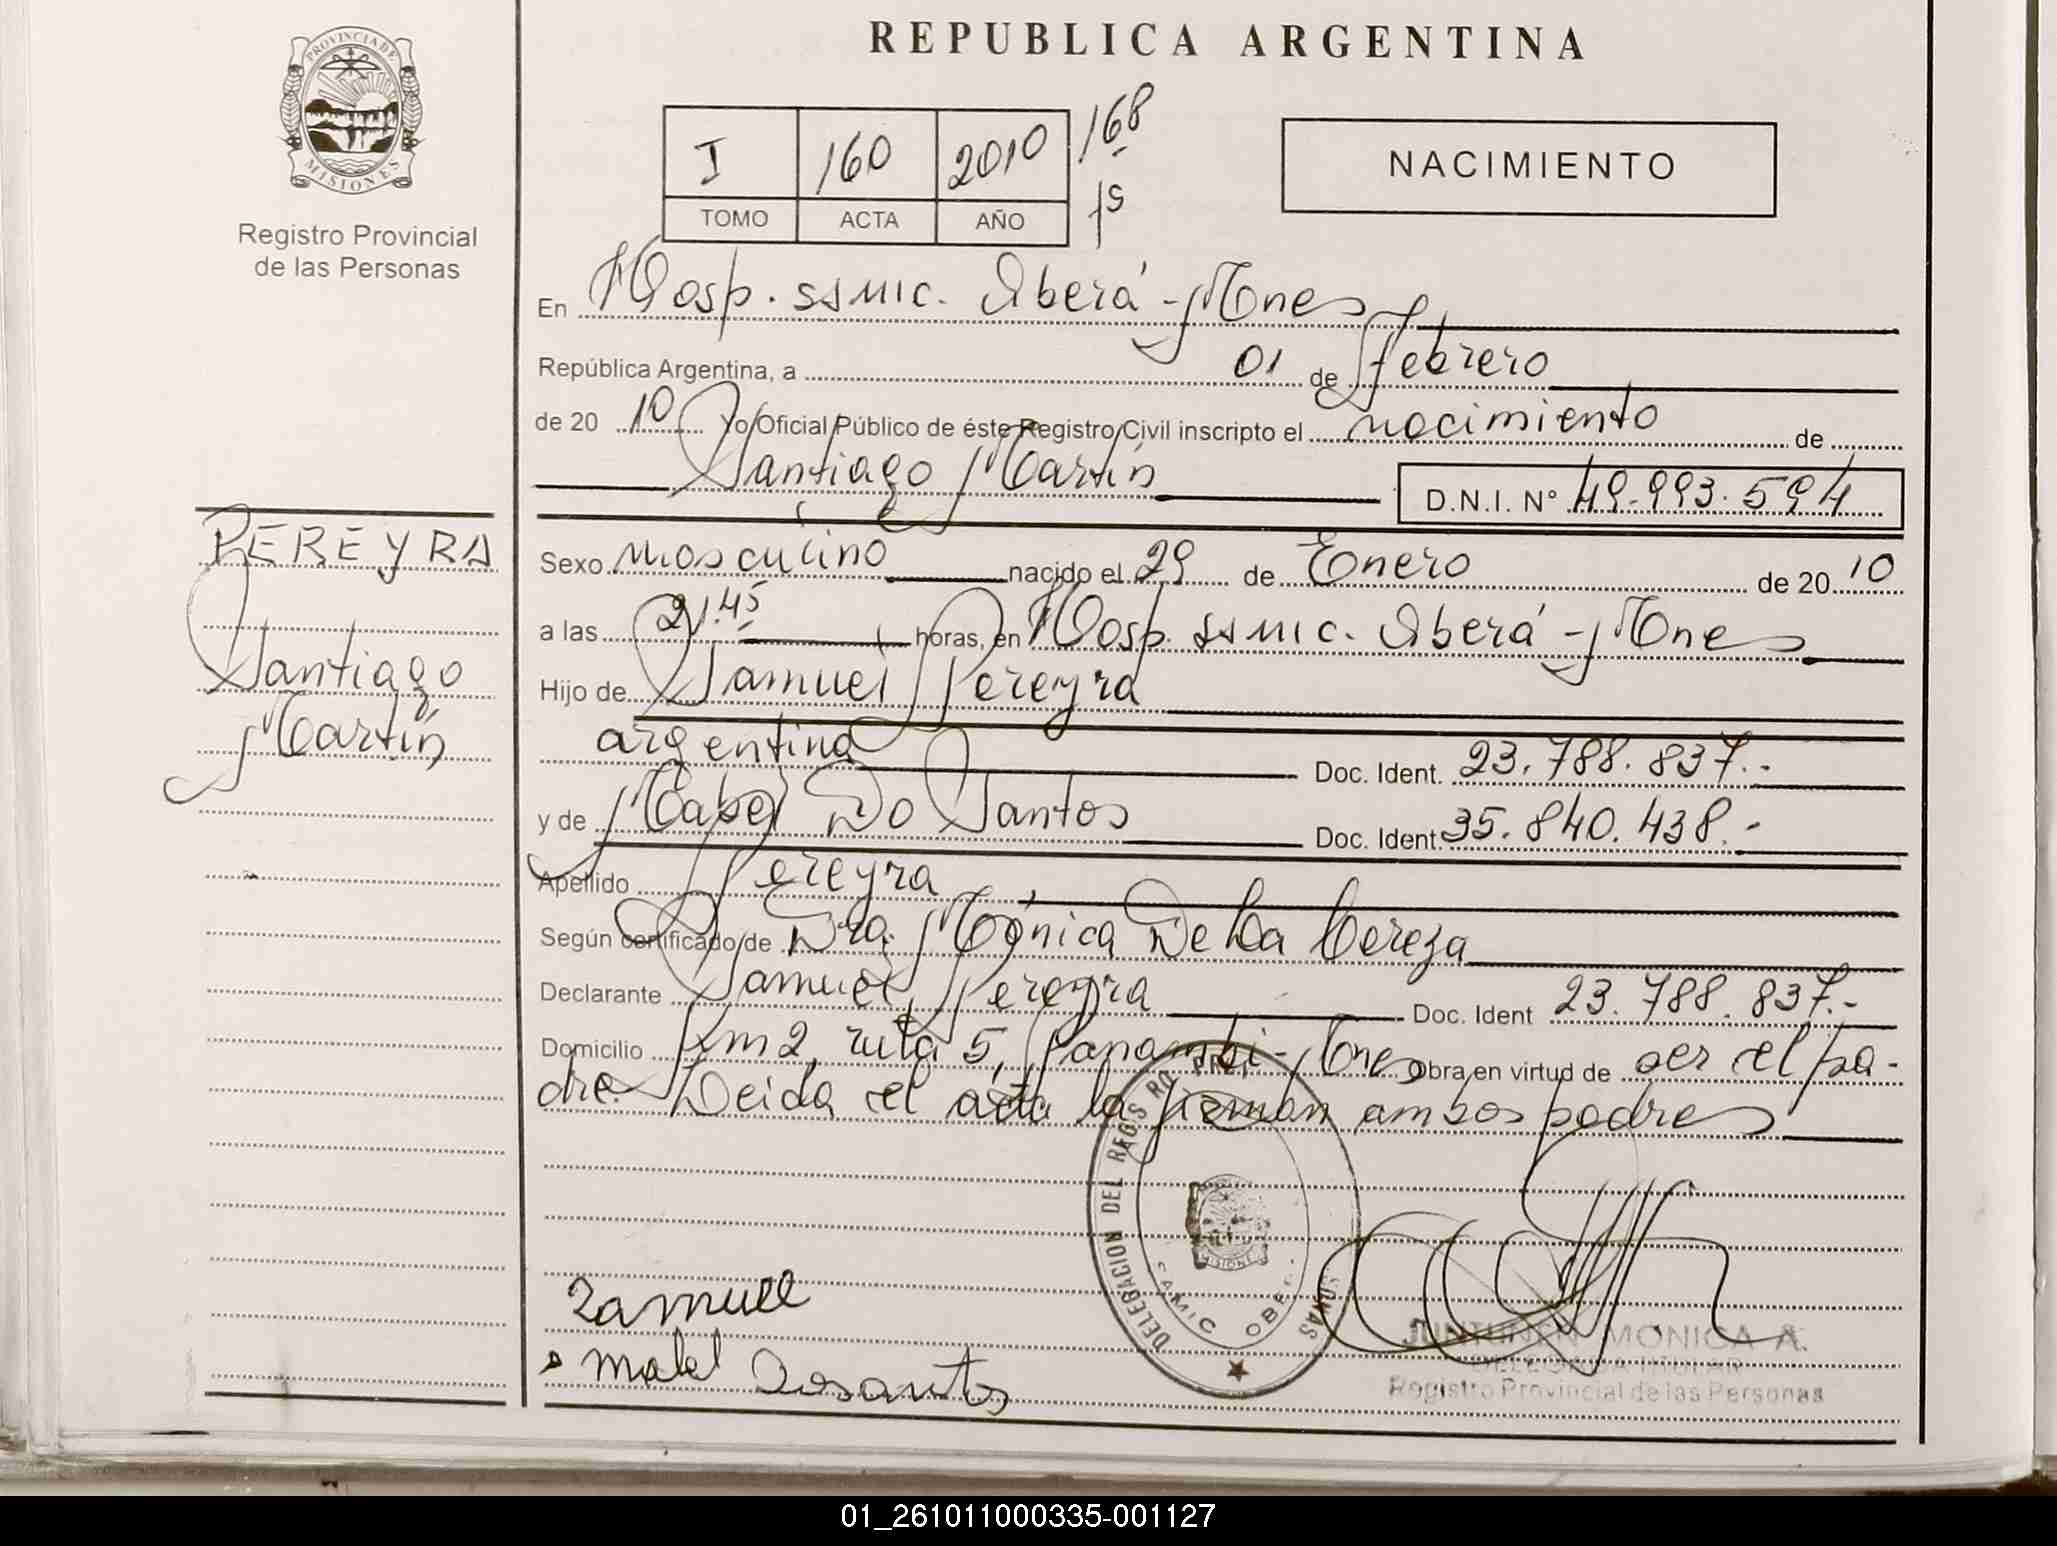 REPUBLICA ARGENTINA
PROVINCIA DE
MISIONES
Registro Provincial
de las Personas
I 160 2010 168
TOMO ACTA AÑO fs
NACIMIENTO
En Hosp. SAMIC. Oberá - Mnes
República Argentina, a 01 de febrero
de 20 10 Yo Oficial Público de éste Registro Civil inscripto el nacimiento de
Santiago Martín D.N.I. N° 49.993.594
PEREYRA
Santiago
Martín
Sexo masculino nacido el 29 de Enero de 20 10
a las 21.45 horas, en Hosp. SAMIC. Oberá - Mnes
Hijo de Samuel Pereyra
argentina Doc. Ident. 23.788.837.-
y de Mabel Do Santos Doc. Ident. 35.840.438.-
Apellido Pereyra
Según certificado de Dra. Mónica De La Cereza
Declarante Samuel Pereyra Doc. Ident 23.788.837.-
Domicilio Km 2, ruta 5, Panambi - Mnes Obra en virtud de ser el pa-
dre. Leida el acta la firman ambos padres
DELEGACION DEL REGIS RO PR
SONAS
SAMIC OBE
MISIONE
Zamuel
Mabel Dosantos
JUNTUNEN MONICA A.
DELEGADA TITULAR
Registro Provincial de las Personas
01_261011000335-001127